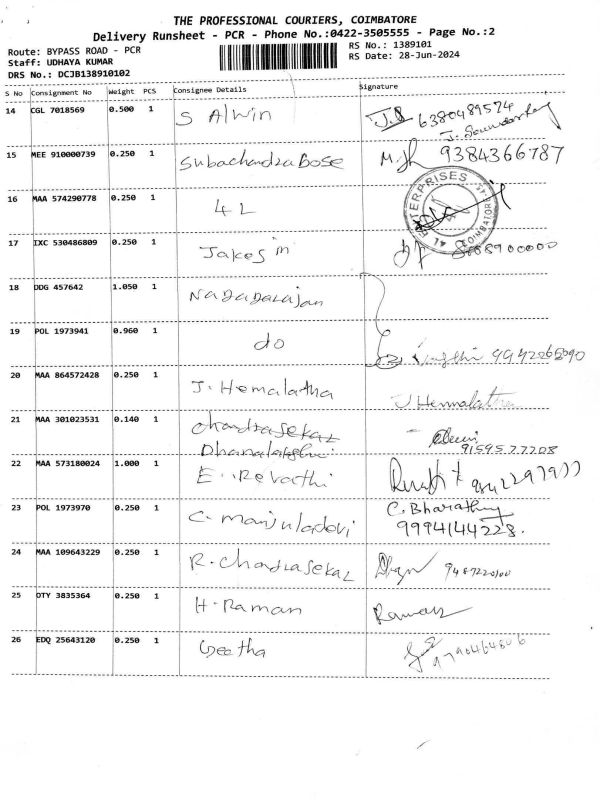 THE PROFESSIONAL COURIERS, COIMBATORE
Delivery Runsheet - PCR - Phone No.:0422-3505555 - Page No.:2
Route: BYPASS ROAD - PCR
RS No.: 1389101
Staff: UDHAYA KUMAR
RS Date: 28-Jun-2024
DRS No.: DCJB138910102
S No Consignment No Weight PCS Consignee Details Signature
14 CGL 7018569 0.500 1 S Alwin 6380489574
15 MEE 910000739 0.250 1 Subachandrabose 9384366787
16 MAA 574290778 0.250 1 4L
ENTERPRISES
COIMBATORE
17 IXC 530486809 0.250 1 Jakesin
18 DDG 457642 1.050 1 Nagagarajan
19 POL 1973941 0.960 1 do
20 MAA 864572428 0.250 1 J. Hemalatha J Hemmalatha
21 MAA 301023531 0.140 1 Chandrasekar
Dhanalakshmi
22 MAA 573180024 1.000 1 E. Revathi
23 POL 1973970 0.250 1 C. Manjuladevi C. Bharathy
9994144228.
24 MAA 109643229 0.250 1 R. Chandrasekar
25 OTY 3835364 0.250 1 H. Raman Raman
26 EDQ 25643120 0.250 1 Geetha